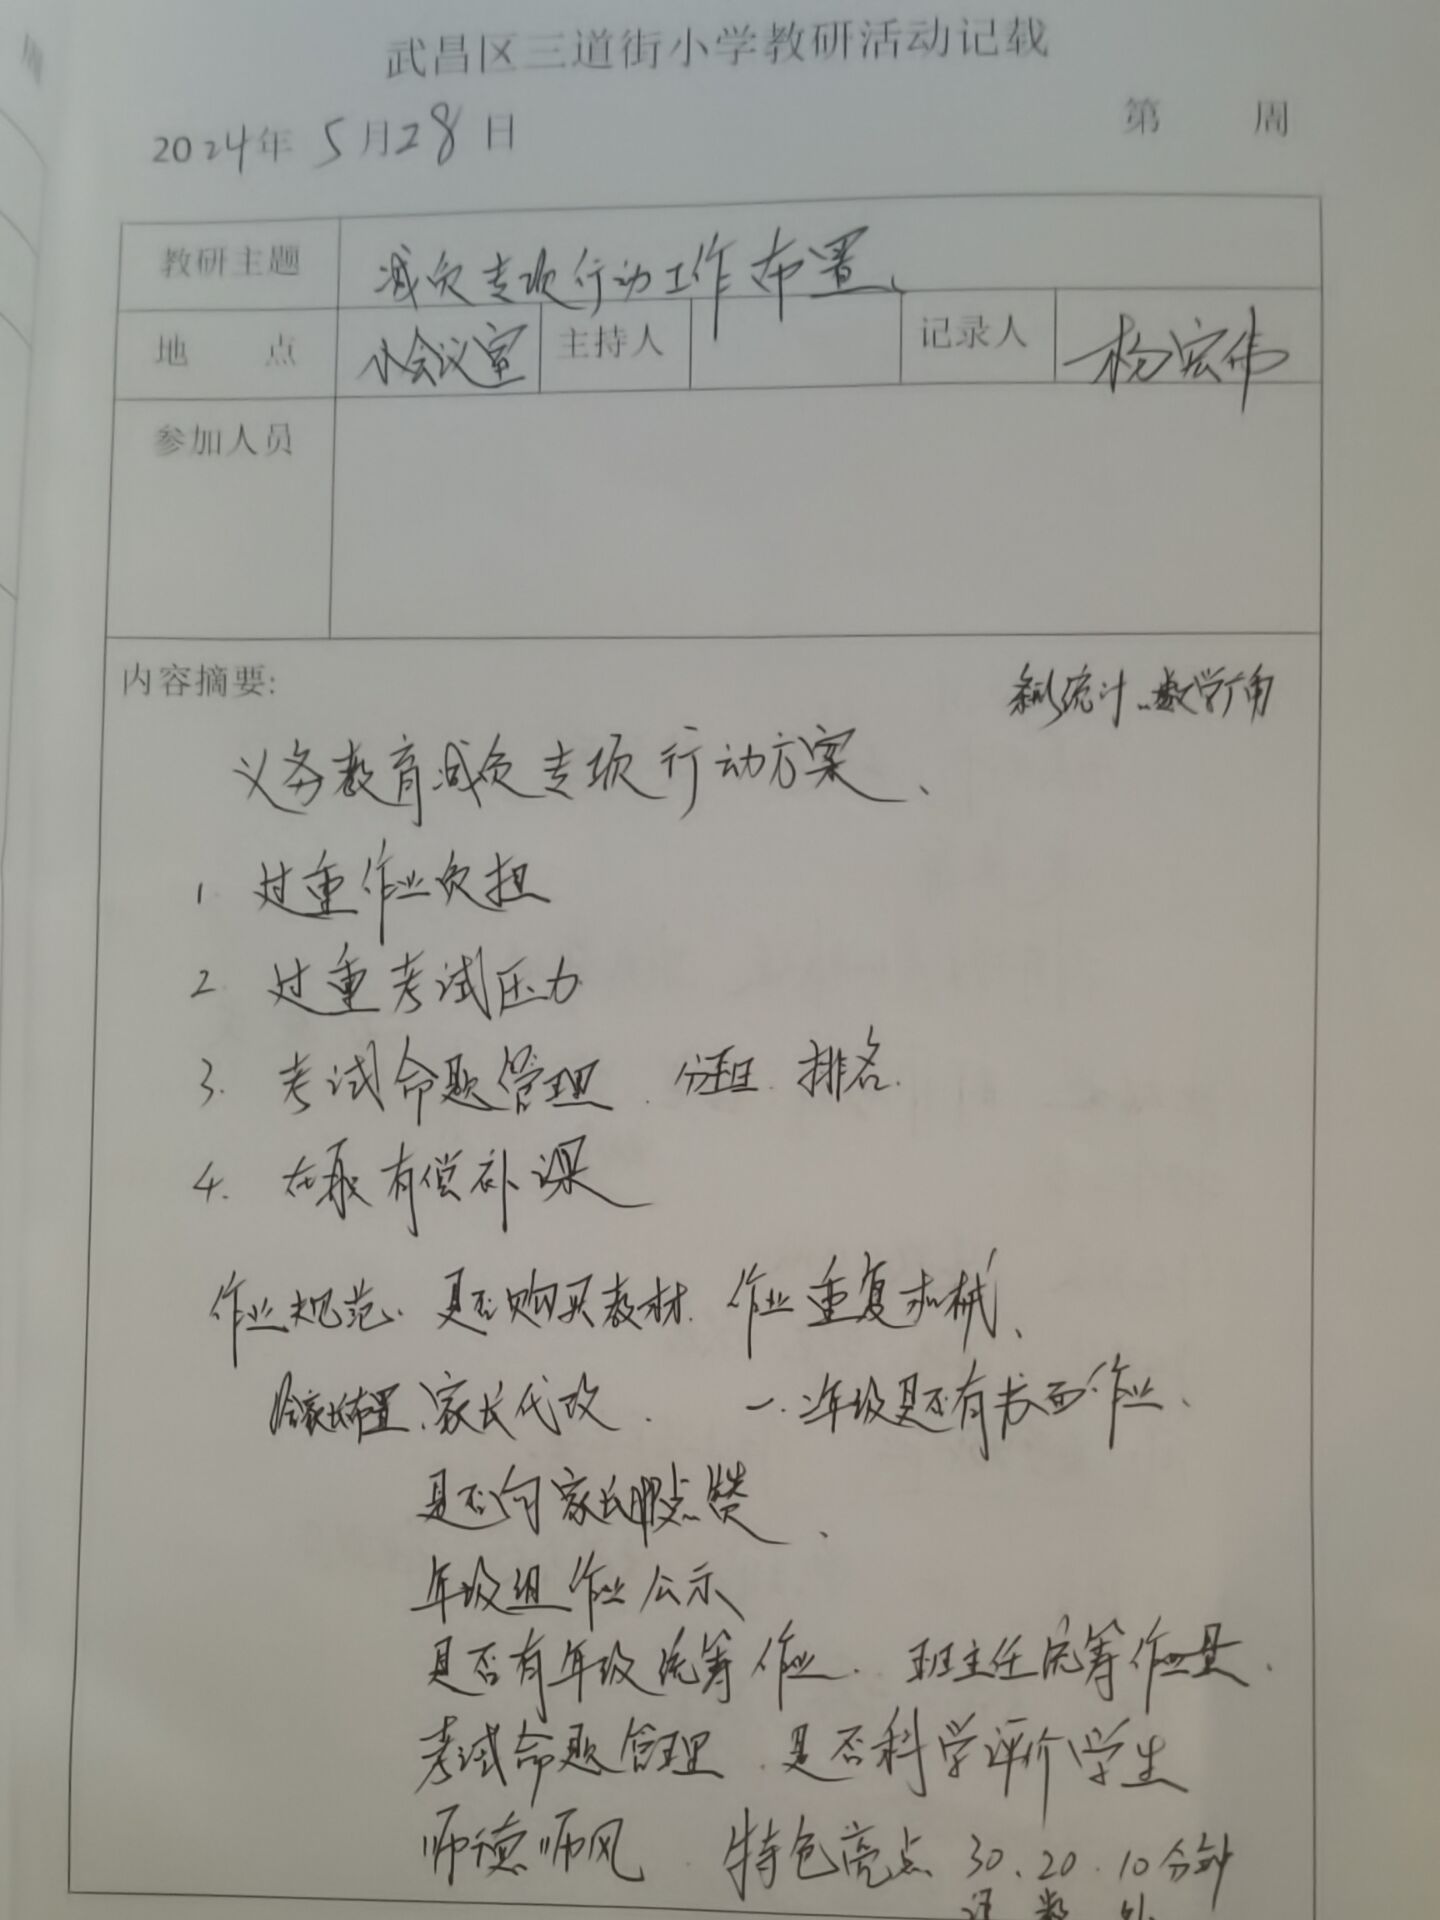 武昌区三道街小学教研活动记载
2024年 5月28日 第 周
教研主题 减负专项行动工作布置、
地 点 小会议室 主持人 记录人 杨宏伟
参加人员
内容摘要: 统计、数学广角
义务教育减负专项行动方案、
1. 过重作业负担
2. 过重考试压力
3. 考试命题管理. 分班. 排名.
4. 在职有偿补课
作业规范. 是否购买教材. 作业重复机械、
给家长布置、家长代改. 一.二年级是否有书面作业、
是否向家长 点赞、
年级组作业公示
是否有年级统筹作业. 班主任统筹作业量.
考试命题管理. 是否科学评价学生
师德师风. 特色亮点 30、20.10分钟
语 数 外